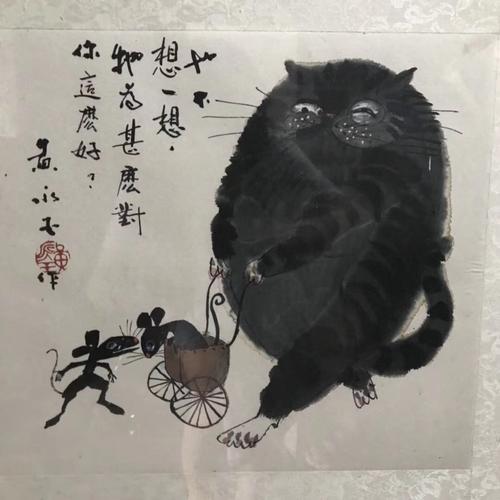 也不
想一想，
牠為甚麼對
你這麼好？
黃永玉作